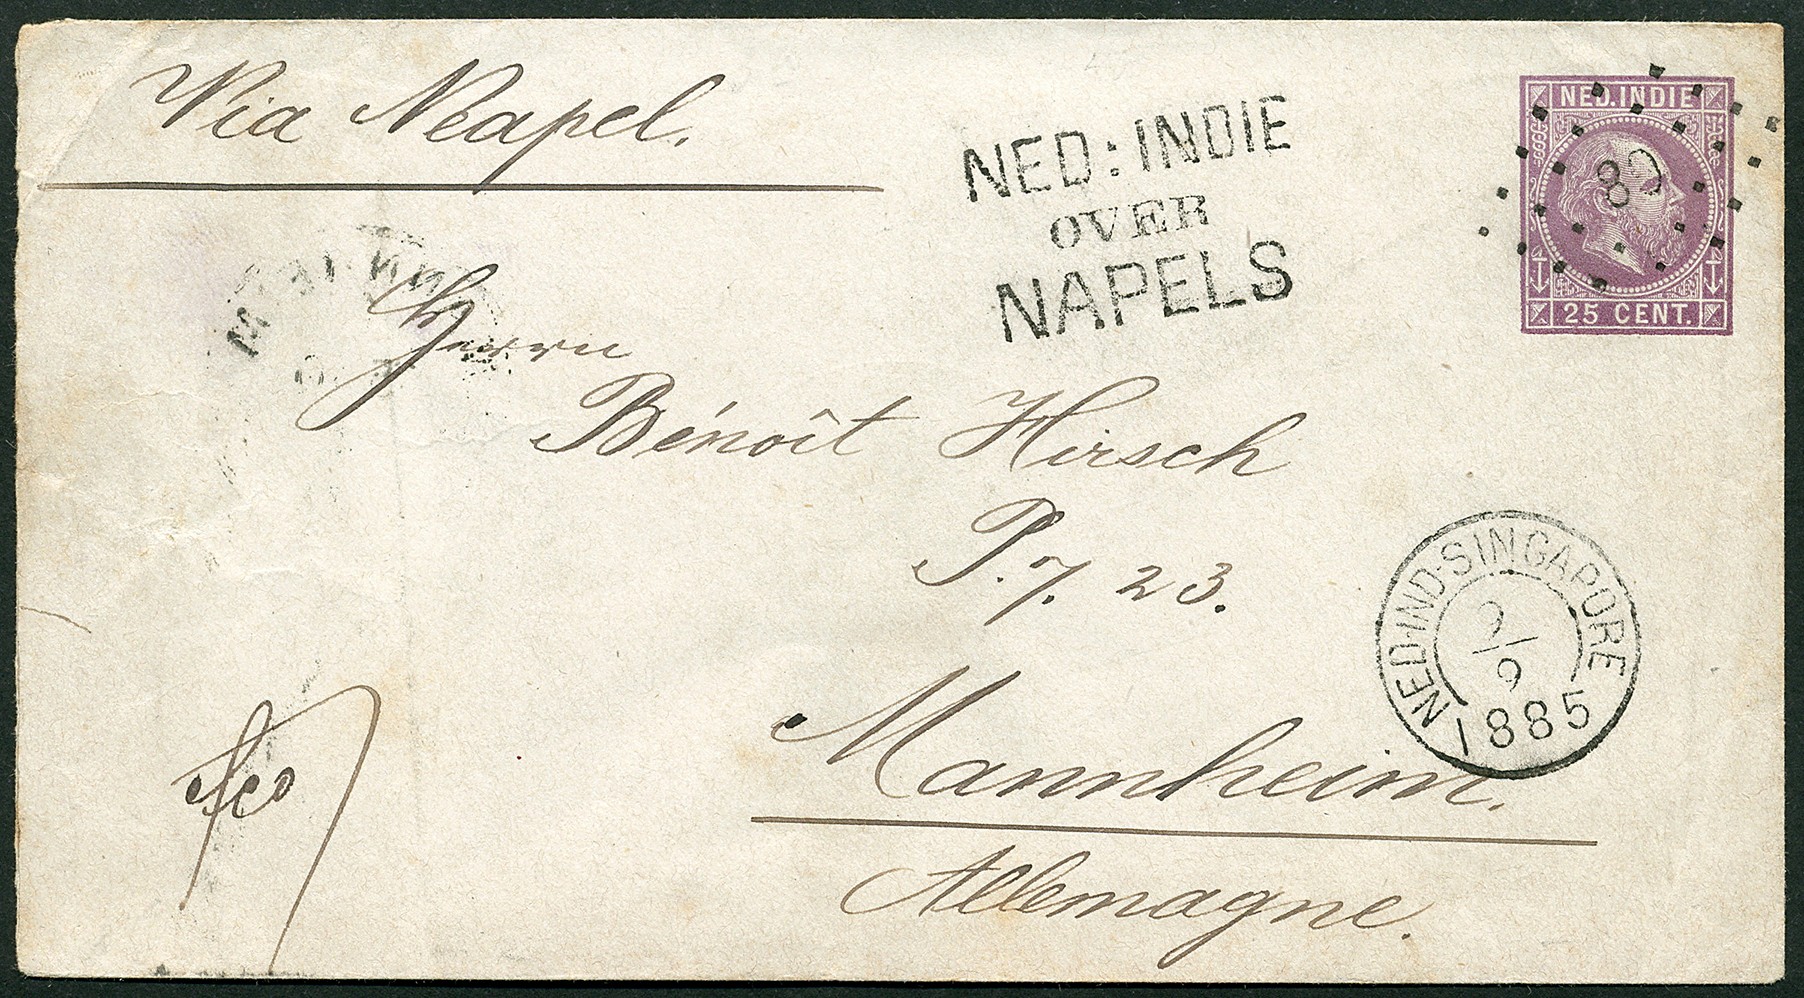 Via Neapel.
NED: INDIE
OVER
NAPELS
NED. INDIE
25 CENT.
Herrn
Bénoît Hirsch
P. 7. 23.
Mannheim.
Allemagne.
fco
NED-IND-SINGAPORE
9/9
1885